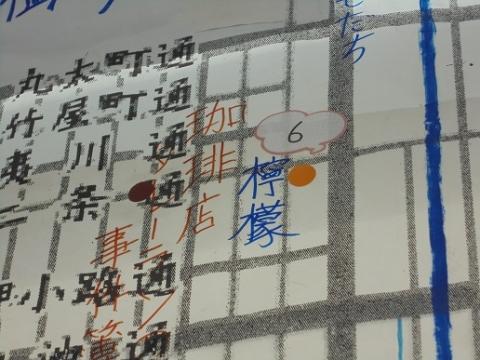 丸太町通
竹屋町通
夷川通
二条通
押小路通
御池通
珈琲店
タレーラン
事件簿
6
檸檬
たち